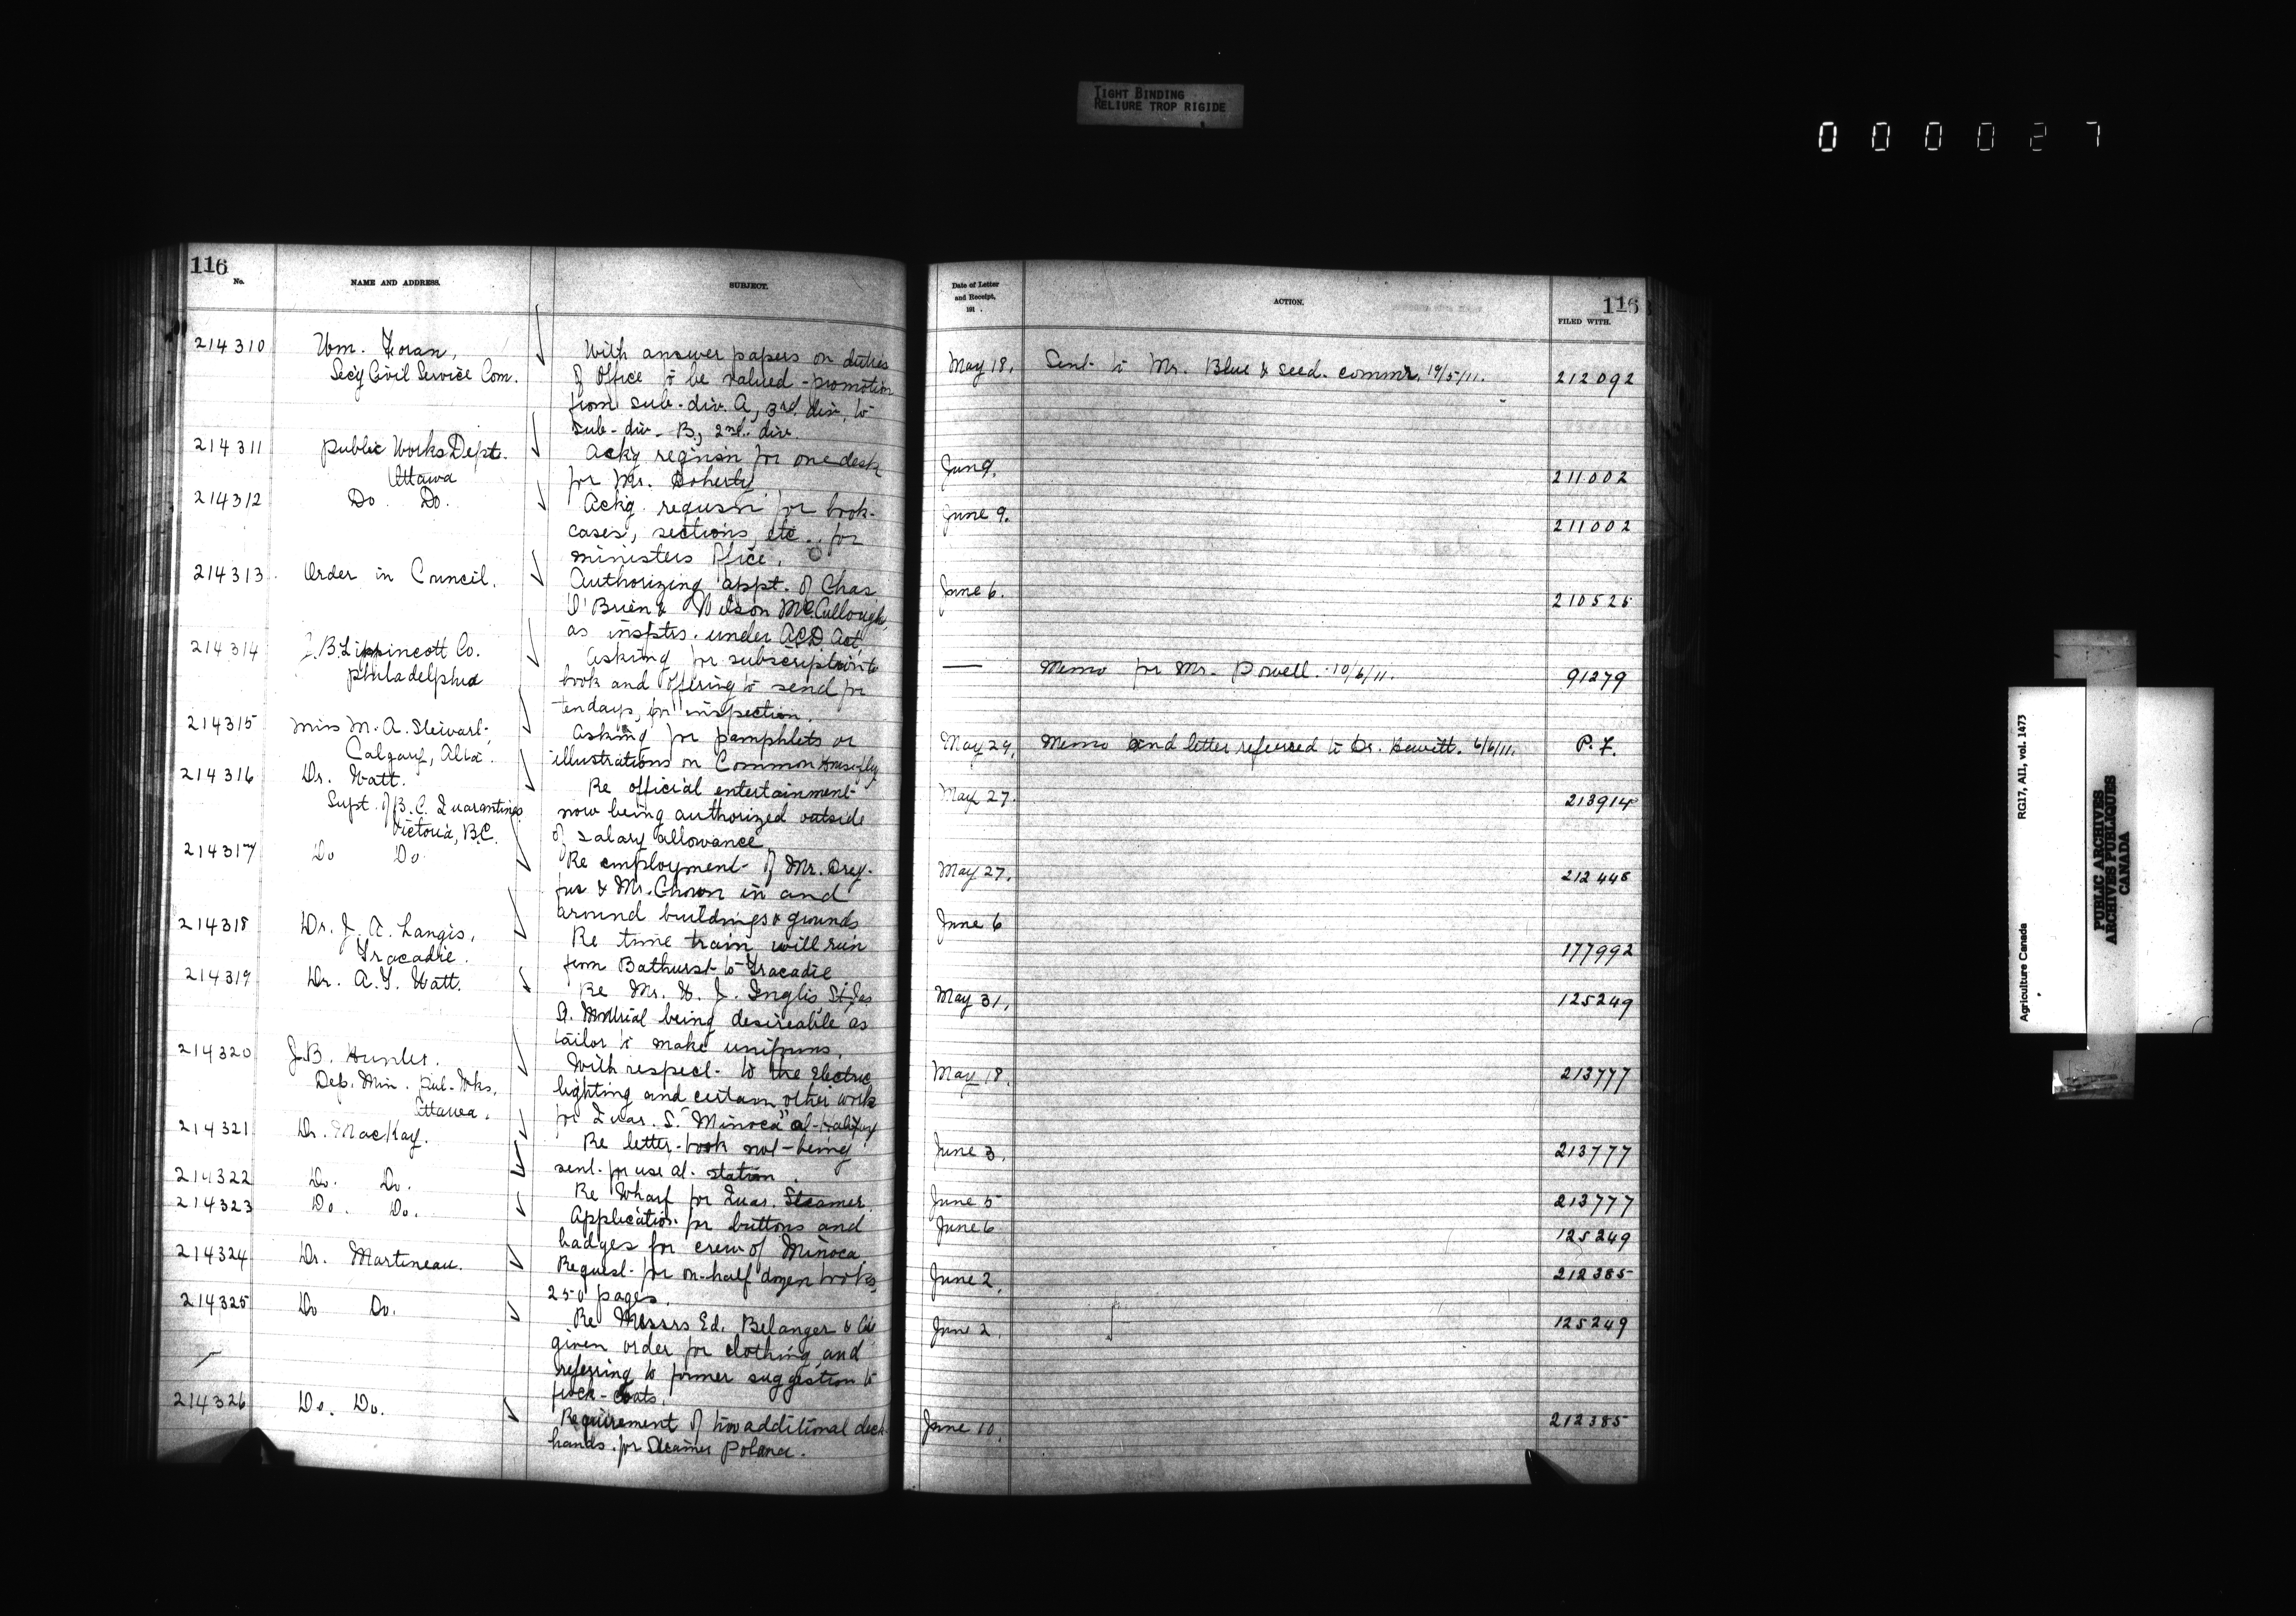 TIGHT BINDING
RELIURE TROP RIGIDE
0 0 0 0 2 7
116
No. NAME AND ADDRESS. SUBJECT.
214310 Wm. Foran, With answer papers on duties
Sec'y Civil Service Com. of Office to be valued - promotion
from sub-div. A, 3rd div. to
sub-div. B, 2nd. div.
214311 Public Works Dept. Ackg requisn for one desk
Ottawa for Mr. Doherty
214312 Do. Do. Ackg. requsn for book-
cases, sections, etc. for
ministers Office.
214313. Order in Council. Authorizing appt. of Chas
O'Brien & Wilson McCullough,
as insptrs. under A.C.D. Act,
214314 J.B. Lippincott Co. Asking for subscription to
Philadelphia book and offering to send for
ten days, for inspection.
214315 Miss M. A. Stewart, Asking for pamphlets or
Calgary, Alta. illustrations on Common Housefly
214316 Dr. Watt. Re official entertainment
Supt. of B.C. Quarantines now being authorized outside
Victoria, B.C. of salary allowance
214317 Do Do. Re employment of Mr. Drey-
fus & Mr. Chown in and
around buildings & grounds
214318 Dr. J. A. Langis, Re time train will run
Tracadie. from Bathurst to Tracadie
214319 Dr. A. T. Watt. Re Mr. W. J. Inglis, St. Jas
St. Montrial being desireable as
tailor to make uniforms.
214320 J.B. Hunter. With respect to the electric
Dep. Min. Pub. Wks. lighting and certain other work
Ottawa. for Quar. S. "Minoca" at Halifax
214321 Dr. MacKay. Re letter-book not being
sent for use at station.
214322 Do. Do. Re Wharf for Quar. Steamer.
214323 Do. Do. Application for buttons and
badges for crew of Minoca
214324 Dr. Martineau. Request for on-half dozen books
250 pages.
214325 Do Do. Re Messrs Ed. Belanger & Cie
given order for clothing and
referring to former suggestion to
frock-coats.
214326 Do. Do. Requirement of two additional deck
hands for Steamer Polana.
Date of Letter
and Receipt,
191 .
ACTION.
116
FILED WITH.
May 18. Sent to Mr. Blue & seed. commr. 19/5/11. 212092
Jun 9. 211002
June 9. 211002
June 6. 210525
— Memo for Mr. Powell. 10/6/11. 91279
May 29. Memo and letter referred to Dr. Hewitt. 6/6/11. P. F.
May 27. 213914
May 27. 212448
June 6 177992
May 31. 125249
May 18. 213777
June 3. 213777
June 5 213777
June 6 125249
June 2. 212385
June 2. 125249
June 10. 212385
Agriculture Canada RG17, AII, vol. 1473
PUBLIC ARCHIVES
ARCHIVES PUBLIQUES
CANADA